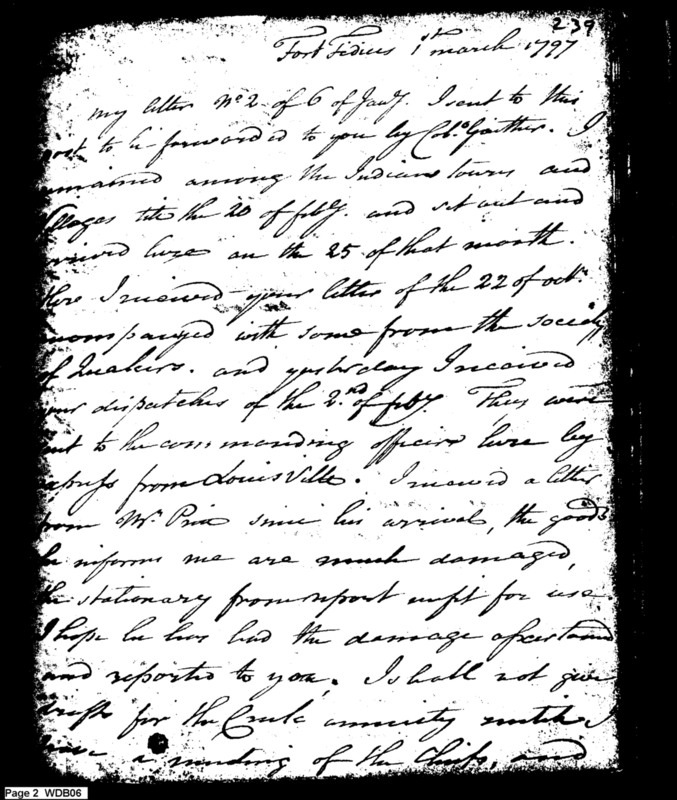 239
Fort Fidius 1st march 1797
My letter No. 2 of 6 of Jany. I sent to this
post to be forwarded to you by Colo. Gaither. I
remained among the Indians towns and
villages till the 20 of feby. and set out and
arrived here on the 25 of that month.
Here I received your letter of the 22 of octr.
accompanyed with some from the society
of Quakers. and yesterday I received
your dispatches of the 2nd. of feby. They were
sent to the commanding officer here by
express from Louisville. I received a letter
from Mr. Price since his arrival, the goods
he informs me are much damaged,
the stationary from report unfit for use
I hope he has had the damage ascertained
and reported to you. I shall not give
drafts for the Creek annuity untill I
have a meeting of the Chiefs, and
Page 2 WDB06